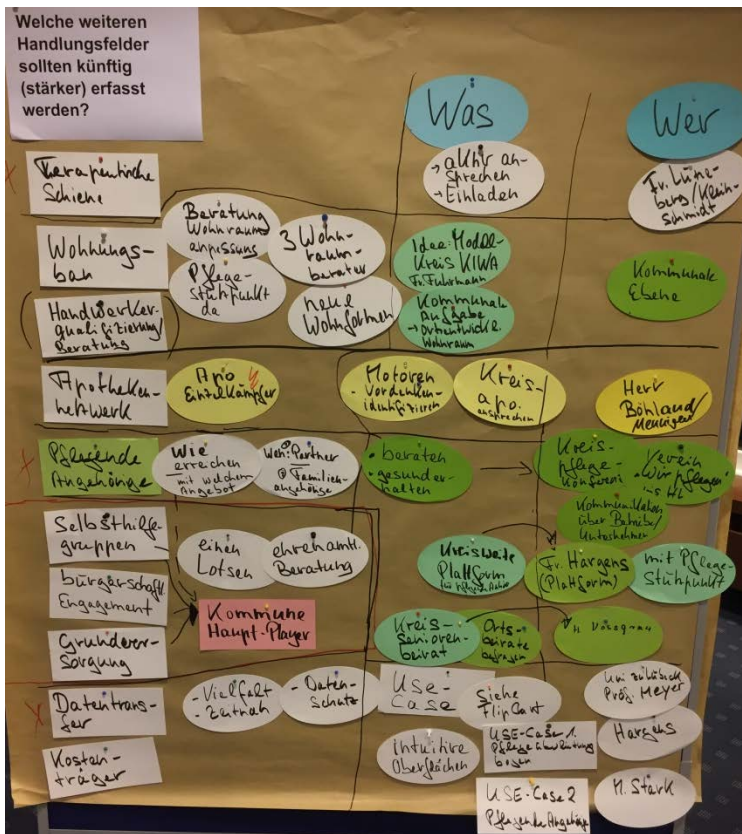 Welche weiteren
Handlungsfelder
sollten künftig
(stärker) erfasst
werden?
Was
Wer
Therapeutische
Schiene
→ aktiv an-
sprechen
→ Einladen
Fr. Lüne-
berg/Klein-
schmidt
Wohnungs-
bau
Beratung
Wohnraum
anpassung
3 Wohn-
raum-
berater
Pflege-
stützpunkt
da
neue
Wohnformen
Idee: Modell-
Kreis KIWA
Fr. Fuhrmann
Kommunale
Aufgabe
→ Ortsentwickl.
Wohnraum
Kommunale
Ebene
(Handwerker-
qualifizierung/
Beratung)
Apotheken-
netzwerk
Apo
Einzelkämpfer
Motoren
- Vordenker
identifizieren
Kreis-
apo.
ansprechen
Herr
Böhland/
Pflegende
Angehörige
Wie
erreichen
mit welchem
Angebot
Wen: Partner
Familien-
angehörige
• beraten
• gesund er-
halten
Kreis-
pflege-
konferenz
Verein
"Wir pflegen"
ins HL
Kommunikation
über Betriebe/
Unternehmen
Selbsthilfe-
gruppen
einen
Lotsen
ehrenamtl.
Beratung
Kreisweite
Plattform
für
Fr. Hargens
(Plattform)
mit Pflege-
Stützpunkt
bürgerschaftl.
Engagement
Kommune
Haupt-Player
Kreis-
senioren-
beirat
Orts-
beiräte
befragen
Grundver-
sorgung
Datentrans-
fer
- Vielfalt
- zeitnah
- Daten-
schutz
USE-
CASE
Siehe
FlipCart
Uni zu Lübeck
Prof. Meyer
Kosten-
träger
Intuitive
Oberflächen
USE-Case 1.
Pflegeüberleitung
bogen
Hargens
USE-Case 2
Pflegende Angehörige
M. Stark